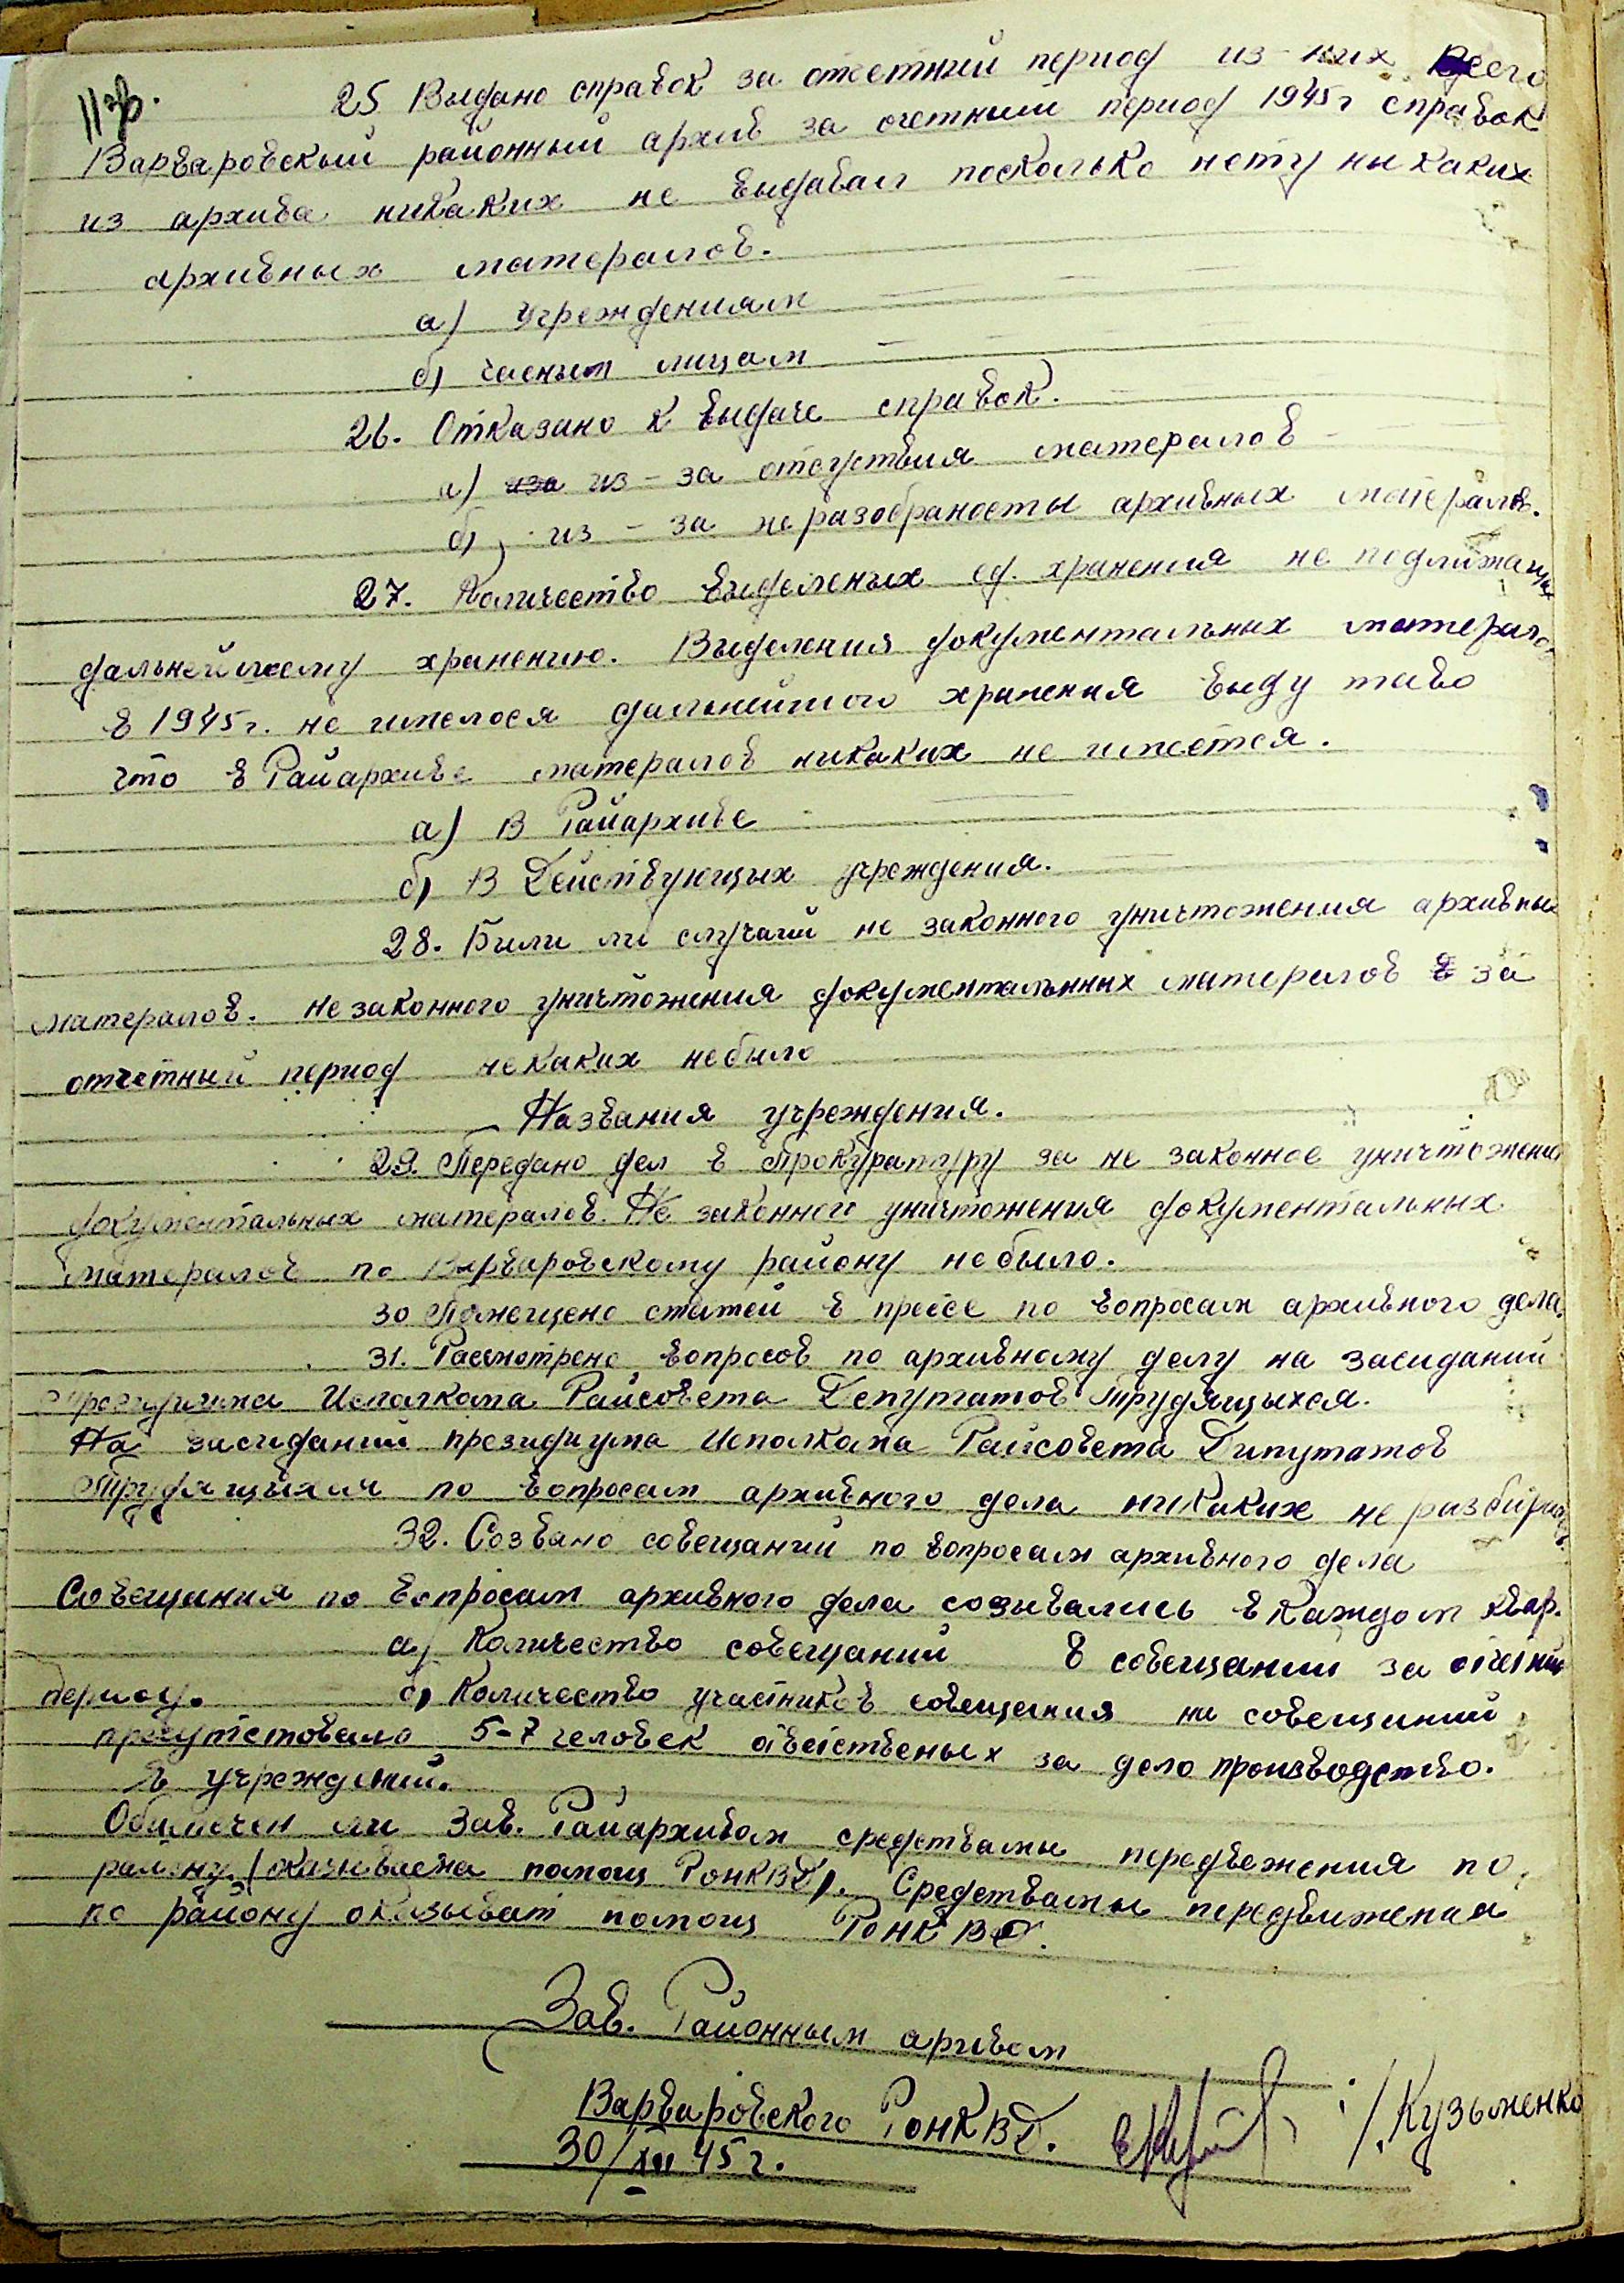 11 зв.
25 Выдано справок за отчетний период из них всего
Варваровский районный архив за очетний период 1945г справок
из архива никаких не выдавал посколько нету ны каких
архивных матералов.
а) Учреждениям —
б) часным лицам —
26. Отказано к выдаче справок.
а) из-за отсуствия матералов —
б) из-за не разобраносты архивных матералов.
27. Количество выделеных ед. хранения не подлижащих
дальнейшему хранению. Выделения документальных матералов
в 1945г. не имелося дальнейшого хранения выду таво
что в Райархиве матералов никаких не имеется.
а) В Райархиве —
б) В Действующых учреждения. —
28. Били ли случаии не законного уничтожения архивных
матералов. Не законного уничтожения документальнных матералов за
отчетный период некаких небыло
Названия учреждения.
29. Передано дел в Прокуратуру за не законное уничтожения
документальных матералов. Не законного уничтожения документальных
матералов по Варваровскому району небыло.
30 Помещено статей в прессе по вопросам архивного дела.
31. Рассмотрено вопросов по архивному делу на засидании
Президиума Исполкома Райсовета Депутатов Трудящыхся.
На засидании президиума Исполкома Райсовета Дипутатов
Трудящыхся по вопросам архивного дела никаких не разбирал
32. Созвано совещаний по вопросам архивного дела
Совещания по вопросам архивного дела созывались в каждом квар.
а) Количество совещаний 8 совещании за отчетний
период. б) Количество участников совещания на совещании
пресутствовало 5-7 человек ответственых за дело производство.
в учреждений.
Обиспечен ли Зав. Райархивом средствамы передвежения по
району (оказывлема помощ РОНКВД). Средствамы передвижения
по району оказывает помощ РОНКВД.
Зав. Районным архивом
Варваровского РОНКВД. /Кузьменко
30/XII 45г.